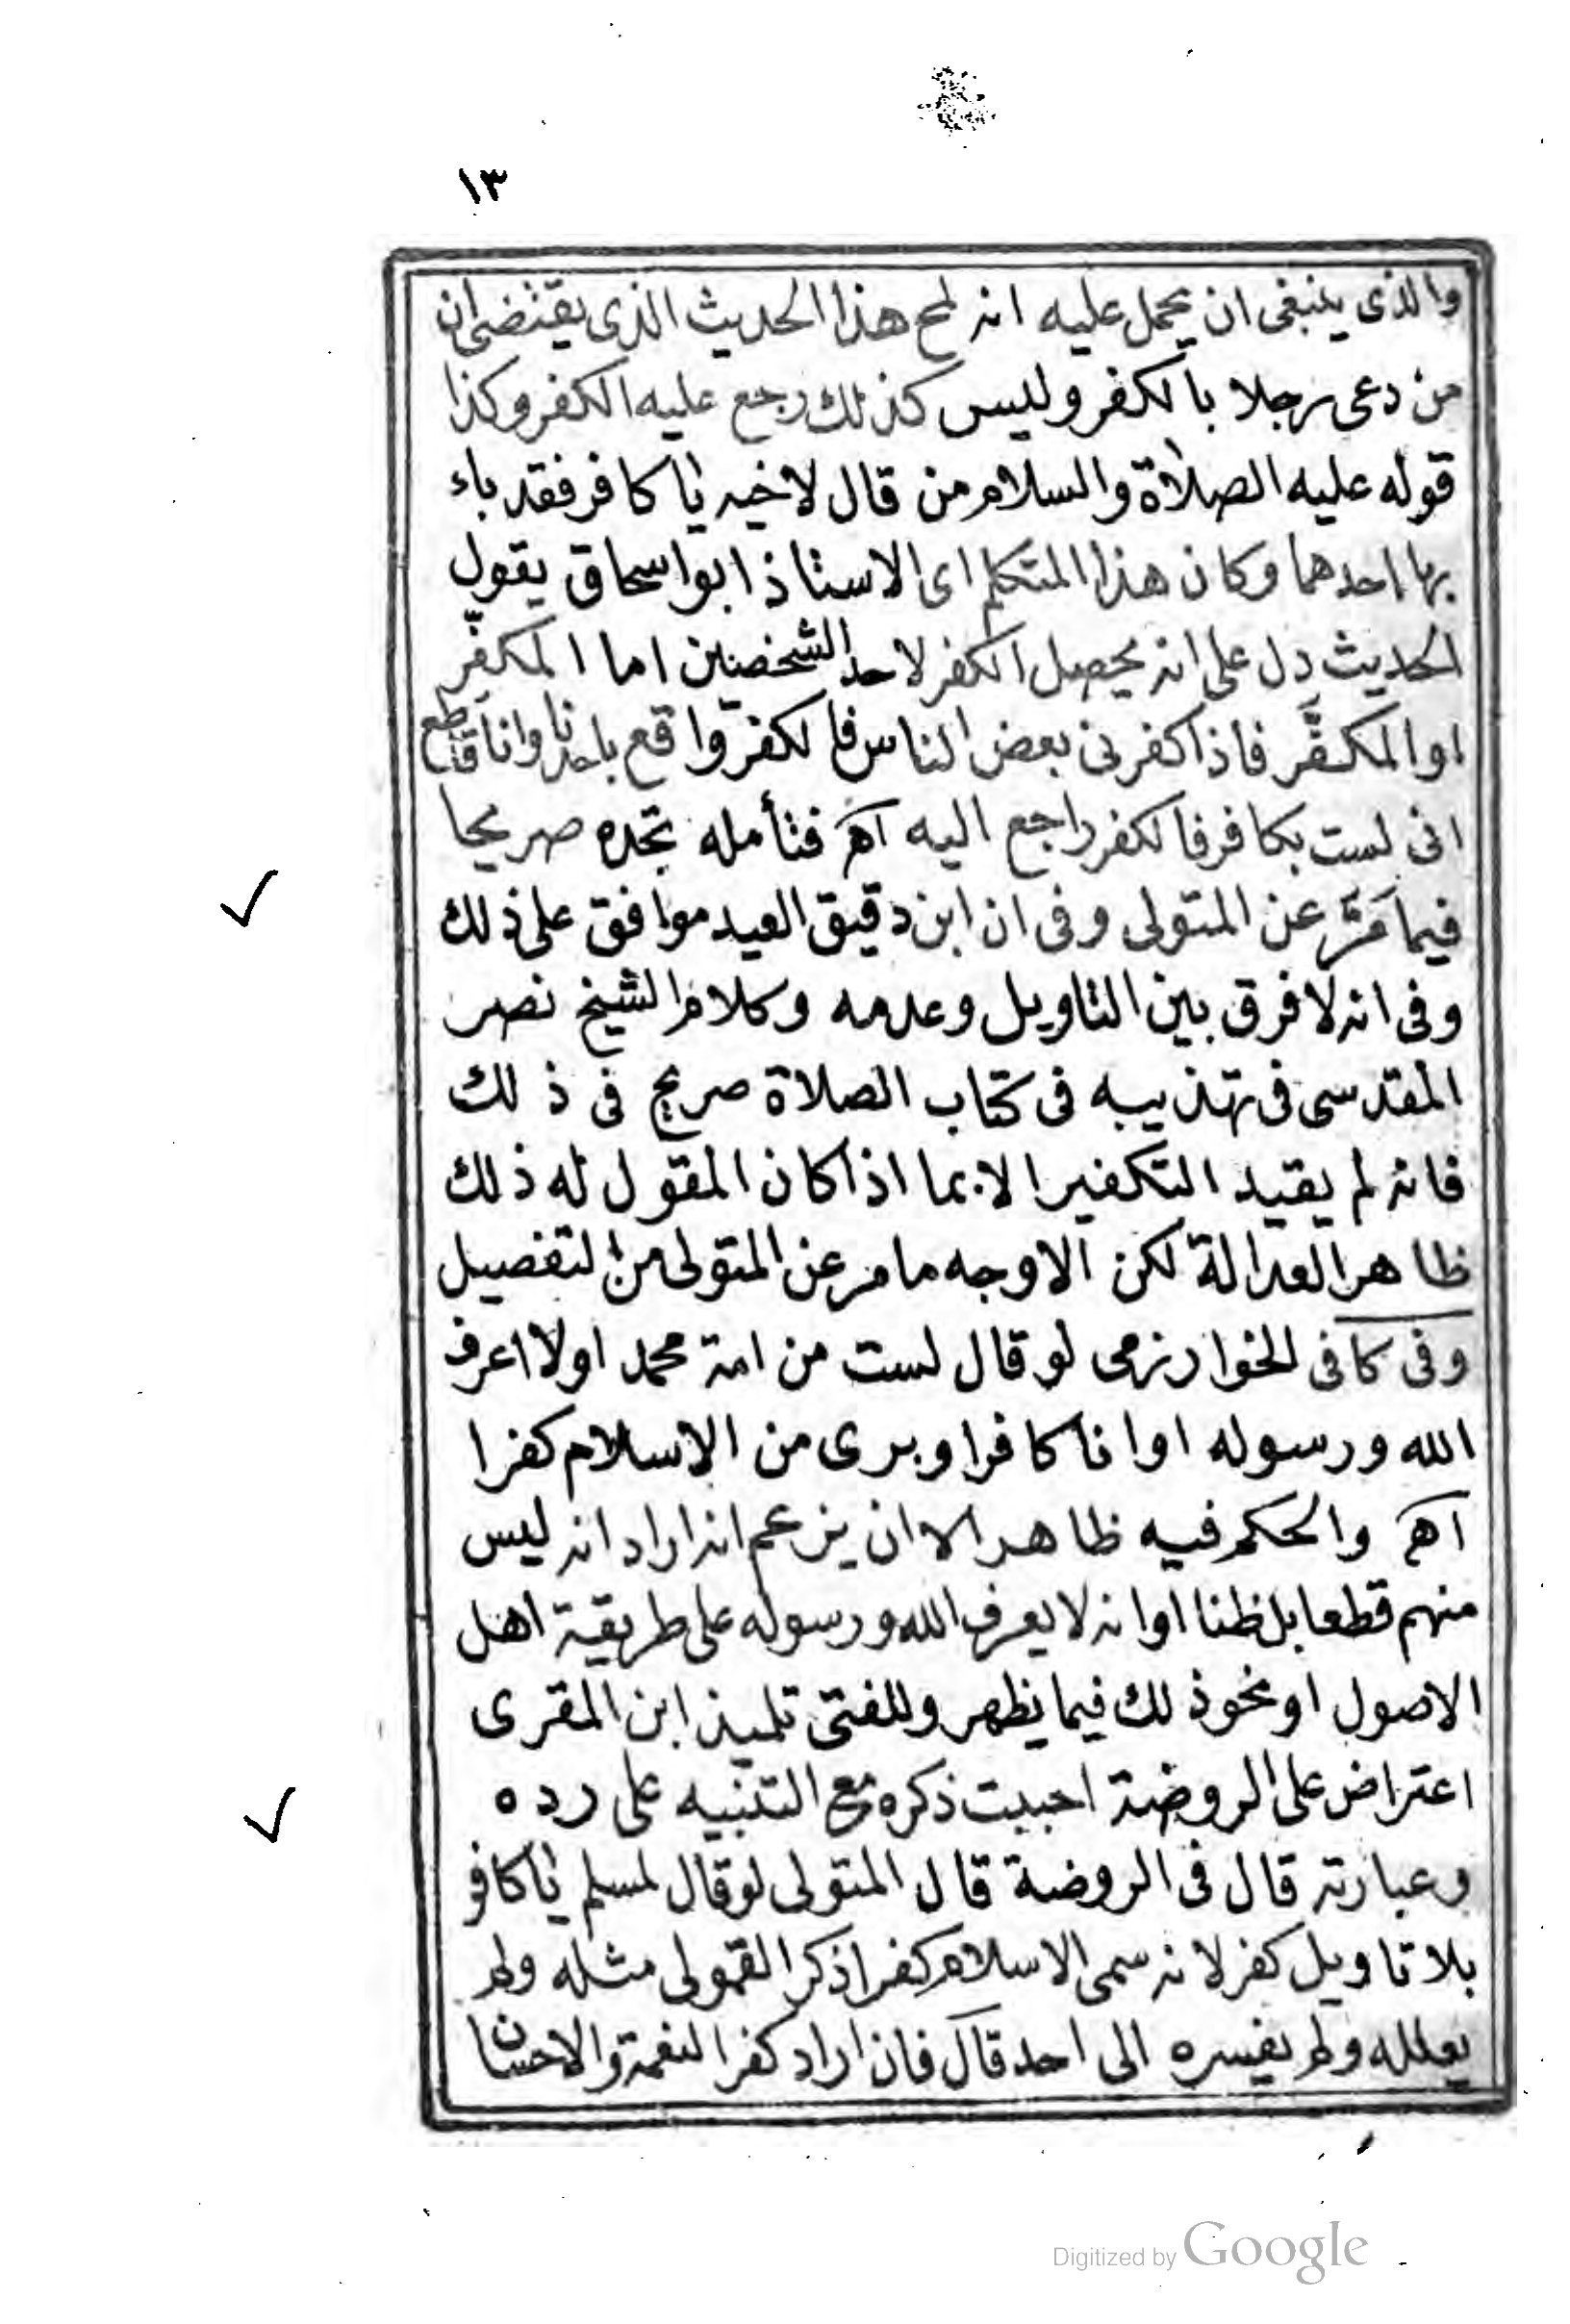 ١٣
والذى ينبغى ان يحمل عليه انه لمح هذا الحديث الذى يقتضى ان
من دعى رجلا بالكفر وليس كذلك رجع عليه الكفر وكذا
قوله عليه الصلاة والسلام من قال لاخيه يا كافر فقد باء
بها احدهما وكان هذا المتكلم اى الاستاذ ابواسحاق يقول
الحديث دل على انه يحصل الكفر لاحد الشخصين اما المكفِّر
او المكفَّر فاذا كفرنى بعض الناس فالكفر واقع باحدنا وانا قاطع
انى لست بكافر فالكفر راجع اليه اهـ فتأمله تجده صريحا
فيما مَرَّ عن المتولى وفى ان ابن دقيق العيد موافق على ذلك
وفى انه لا فرق بين التاويل وعدمه وكلام الشيخ نصر
المقدسى فى تهذيبه فى كتاب الصلاة صريح فى ذلك
فانه لم يقيد التكفير الا بما اذا كان المقول له ذلك
ظاهر العدالة لكن الاوجه ما مر عن المتولى من التفصيل
وفى كافى الخوارزمى لو قال لست من امة محمد او لا اعرف
الله ورسوله او انا كافر او برى من الاسلام كفرا
اهـ والحكم فيه ظاهر الا ان يزعم انه اراد انه ليس
منهم قطعا بل ظنا او انه لا يعرف الله ورسوله على طريقة اهل
الاصول او نحو ذلك فيما يظهر وللفتى تلميذ ابن المقرى
اعتراض على الروضة احببت ذكره مع التنبيه على رده
وعبارته قال فى الروضة قال المتولى لو قال لمسلم يا كافر
بلا تاويل كفر لانه سمى الاسلام كفرا ذكر القمولى مثله ولم
يعلله ولم يفسره الى احد قال فان اراد كفر النعمة والاحسان
Digitized by Google